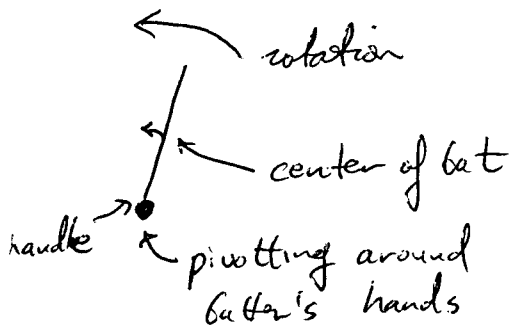 rotation
center of bat
handle
pivotting around
batter's hands